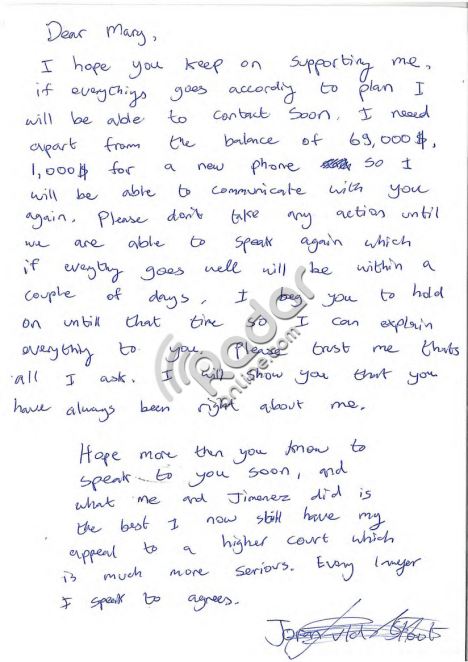 Dear Mary,
I hope you keep on supporting me,
if everythings goes accordig to plan I
will be able to contact soon. I need
apart from the balance of 69,000$,
1,000$ for a new phone so I
will be able to communicate with you
again. Please don't take any action until
we are able to speak again which
if eveythg goes well will be within a
couple of days. I beg you to hold
on untill that time so I can explain
everything to you. Please trust me thats
all I ask. I will show you that you
have always been right about me.
Hope more then you know to
speak to you soon, and
what me and Jimenez did is
the best I now still have my
appeal to a higher court which
is much more serious. Every lawyer
I speak to agrees.
Joran vld Sloot
Radar
online.com